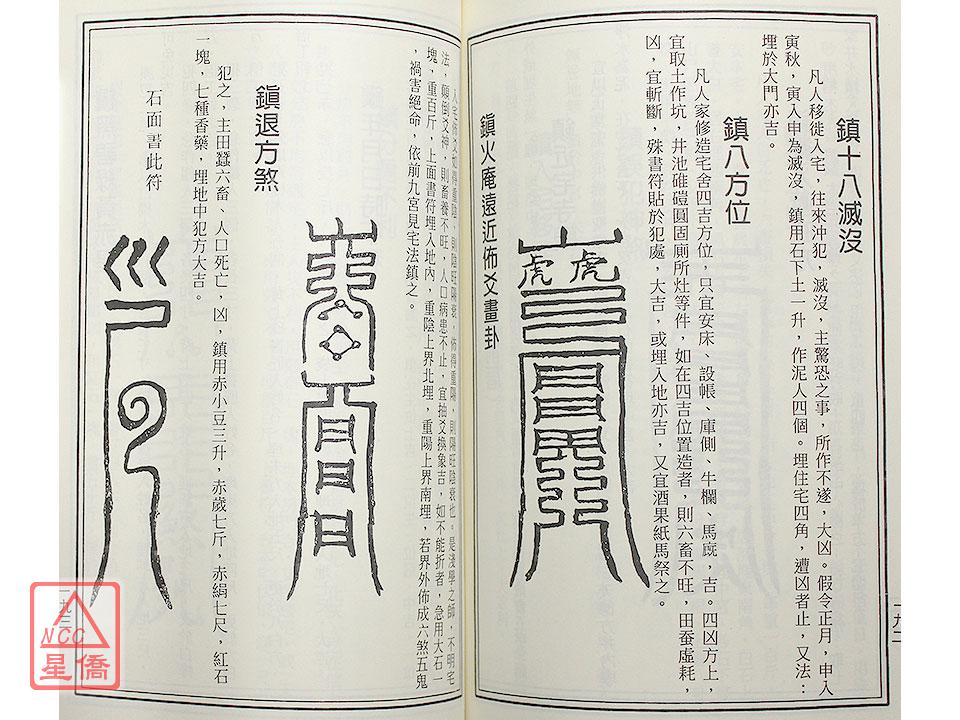 鎮十八滅沒
凡人移徙入宅，往來沖犯，滅沒，主驚恐之事，所作不遂，大凶。假令正月，申入
寅秋，寅入申為滅沒，鎮用石下土一升，作泥人四個。埋住宅四角，遭凶者止，又法：
埋於大門亦吉。
鎮八方位
凡人家修造宅舍四吉方位，只宜安床、設帳、庫側、牛欄、馬廐，吉。四凶方上，
宜取土作坑，井池碓磑圓固廁所灶等件，如在四吉位置造者，則六畜不旺，田蚕虛耗，
凶，宜斬斷，殊書符貼於犯處，大吉，或埋入地亦吉，又宜酒果紙馬祭之。
虎虎
鎮火庵遠近佈爻畫卦
一九二
人宅佈爻如得重陰，則陰旺陽衰，佈得重陽，則陽旺陰衰也。是淺學之師，不明宅
法，顛倒爻神，則畜養不旺，人口病患不止，宜抽爻換象吉，如不能折者，急用大石一
塊，重百斤，上面書符埋入地內，重陰上界北埋，重陽上界南埋，若界外佈成六煞五鬼
，禍害絕命，依前九宮見宅法鎮之。
鎮退方煞
犯之，主田蠶六畜、人口死亡，凶，鎮用赤小豆三升，赤歲七斤，赤絹七尺，紅石
一塊，七種香藥，埋地中犯方大吉。
石面書此符
一九三
NCC
星僑